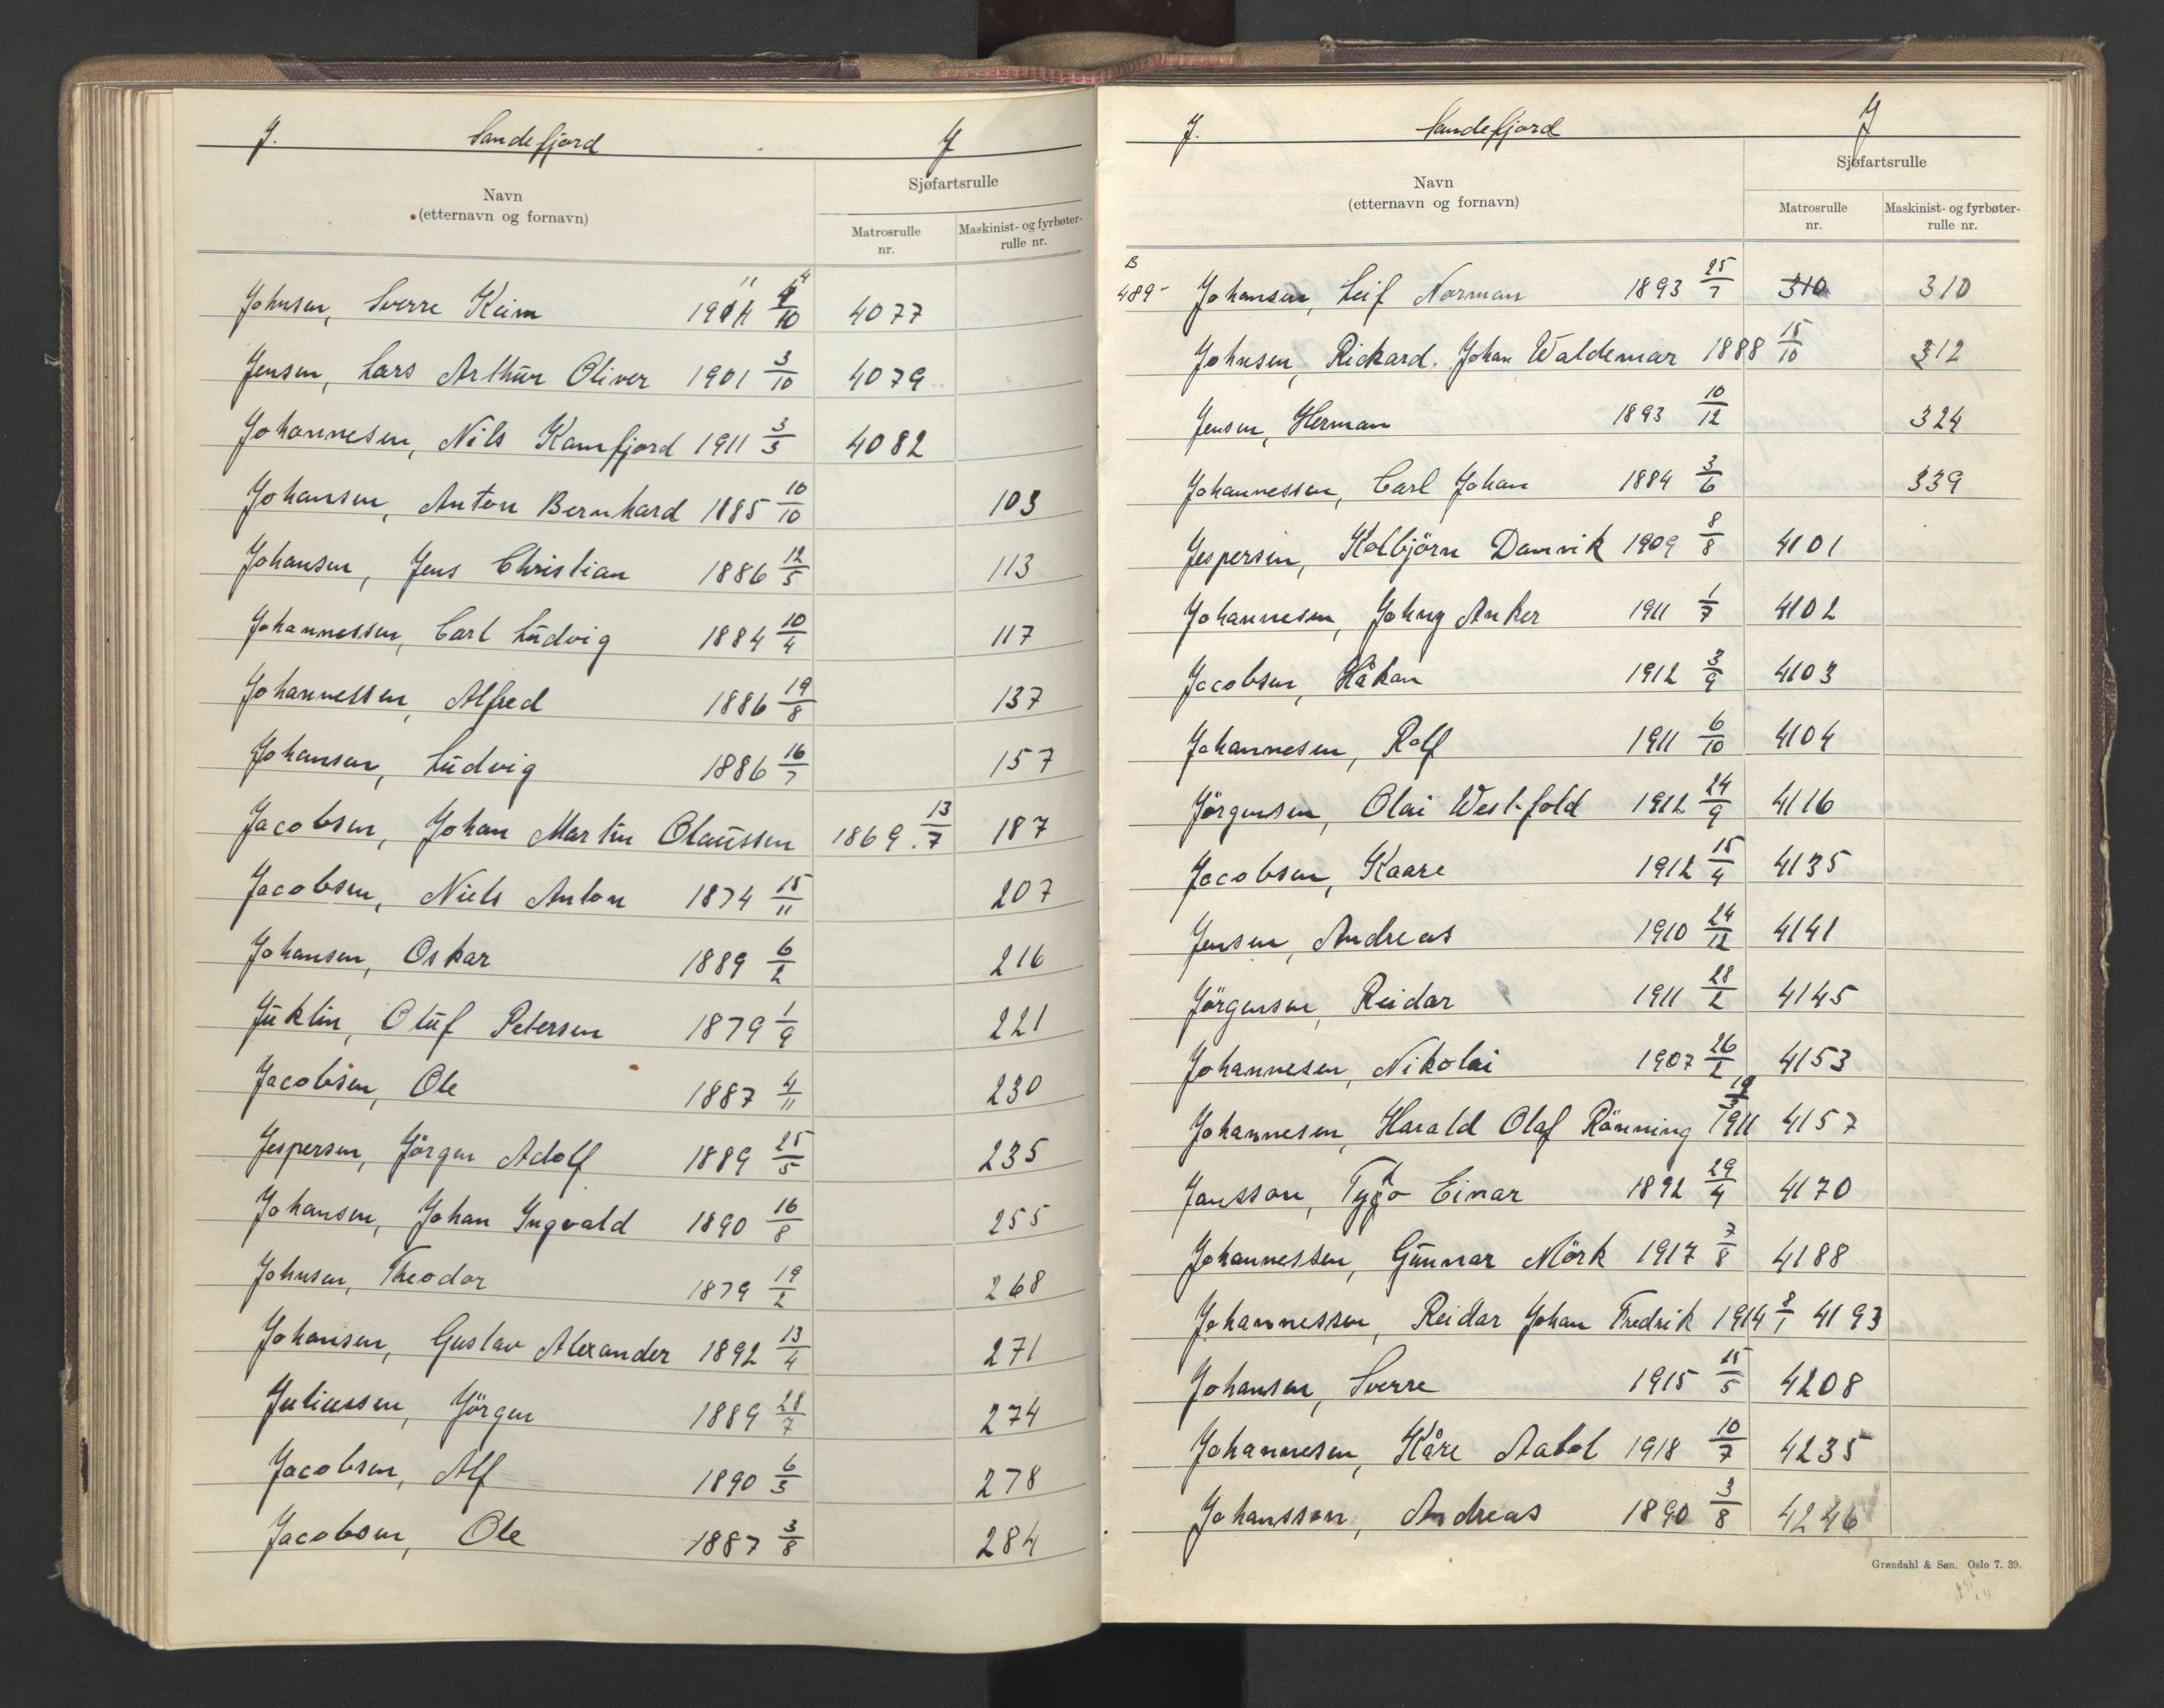 J. Sandefjord J
Navn
(etternavn og fornavn)
Sjøfartsrulle
Matrosrulle nr.
Maskinist- og fyrbøter-rulle nr.
Johnsen, Sverre Keim 4/10 4077
Jensen, Lars Arthur Oliver 1901 3/10 4079
Johannesen, Nils Kamfjord 1911 3/3 4082
Johansen, Anton Bernhard 1885 10/10 103
Johansen, Jens Christian 1886 12/5 113
Johannessen, Carl Ludvig 1884 10/4 117
Johannessen, Alfred 1886 19/8 137
Johansen, Ludvig 1886 16/7 157
Jacobsen, Johan Martin Olaussen 1869 13/7 187
Jacobsen, Niels Anton 1874 15/11 207
Johansen, Oskar 1889 6/2 216
Juklin, Oluf Petersen 1879 1/9 221
Jacobsen, Ole 1887 4/11 230
Jespersen, Jörgen Adolf 1889 25/5 235
Johansen, Johan Ingvald 1890 16/8 255
Johnsen, Theodor 1879 19/2 268
Johansen, Gustav Alexander 1892 13/4 271
Juliussen, Jörgen 1889 28/7 274
Jacobsen, Alf 1890 6/3 278
Jacobsen, Ole 1887 3/8 284
J. Sandefjord J
Navn
(etternavn og fornavn)
Sjøfartsrulle
Matrosrulle nr.
Maskinist- og fyrbøter-rulle nr.
B
489- Johansen, Leif Norman 1893 25/7 310 310
Johnsen, Rickard. Johan Waldemar 1888 15/10 312
Jensen, Herman 1893 10/12 324
Johannessen, Carl Johan 1884 3/6 339
Jespersen, Kolbjörn Damvik 1909 8/8 4101
Johannesen, Johny Anker 1911 1/7 4102
Jacobsen, Håkan 1912 3/9 4103
Johannesen, Rolf 1911 6/10 4104
Jörgensen, Olai Westfold 1912 24/9 4116
Jacobsen, Kaare 1912 15/4 4135
Jensen, Andreas 1910 24/12 4141
Jörgensen, Reidar 1911 28/2 4145
Johannesen, Nikolai 1907 26/2 4153
Johannesen, Harald Olaf Rönning 1911 4157
Jansson, Einar 1892 29/4 4170
Johannessen, Gunnar Mörk 1917 7/8 4188
Johannessen, Reidar Johan Fredrik 1914 8/1 4193
Johansen, Sverre 1915 15/5 4208
Johannesen, Kåre Aabol 1918 10/7 4235
Johansson, Andreas 1890 3/8 4246
Grøndahl & Søn. Oslo 7. 39.